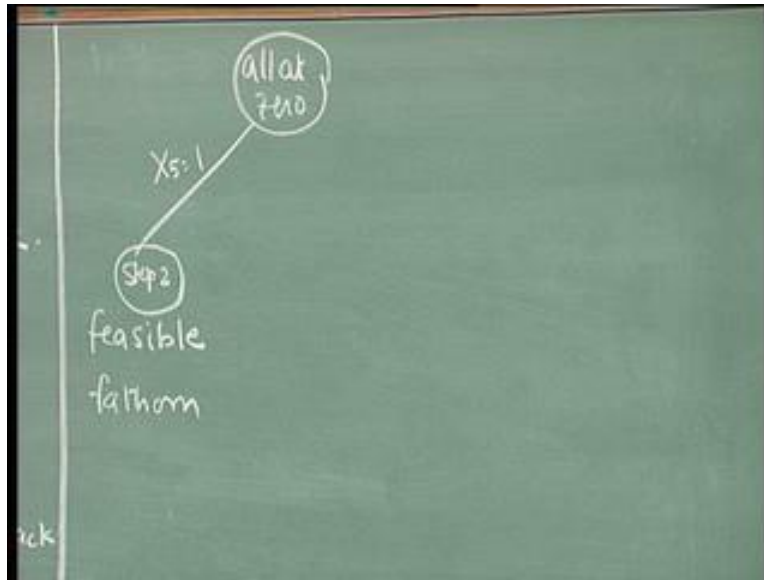 all at
zero
X5=1
Step 2
feasible
fathom
ack